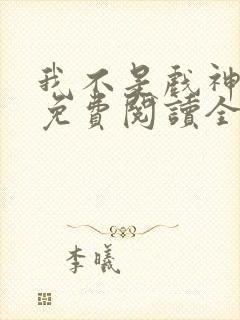 我不是戲神
免費閱讀全
李曦